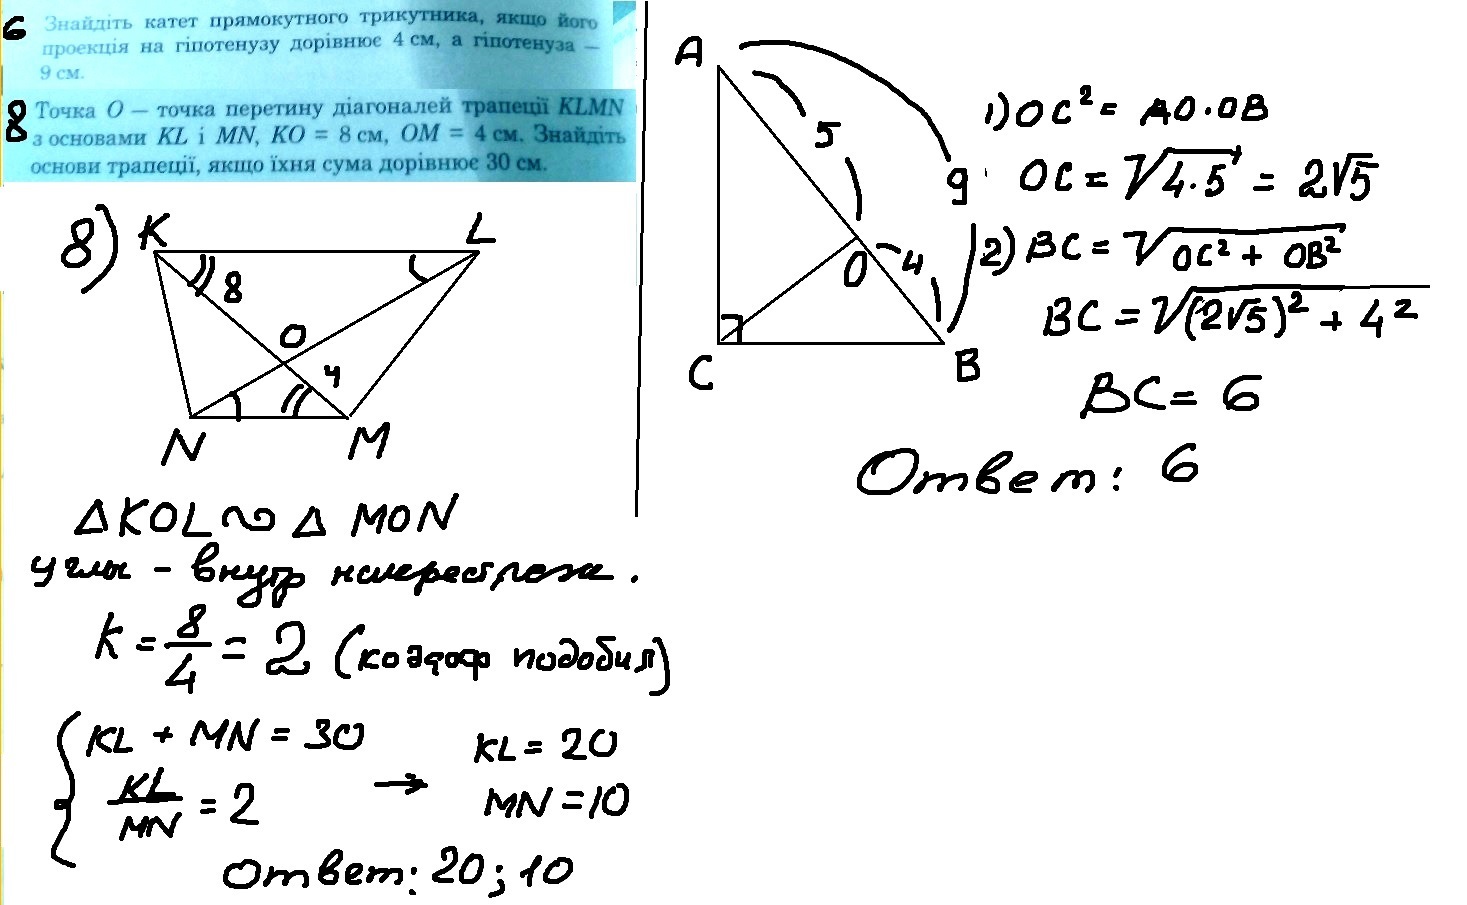 6 Знайдіть катет прямокутного трикутника, якщо його
проекція на гіпотенузу дорівнює 4 см, а гіпотенуза —
9 см.
8 Точка O — точка перетину діагоналей трапеції KLMN
з основами KL і MN, KO = 8 см, OM = 4 см. Знайдіть
основи трапеції, якщо їхня сума дорівнює 30 см.
8)
K L
8
O
4
N M
ΔKOL ∾ Δ MON
углы - внутр накрест леж.
k = 8/4 = 2 (коэфф подобия)
KL + MN = 30
KL/MN = 2
→
KL = 20
MN = 10
Ответ: 20; 10
A
5
9
O
4
C B
1) OC² = AO·OB
OC = √4·5 = 2√5
2) BC = √OC² + OB²
BC = √(2√5)² + 4²
BC = 6
Ответ: 6